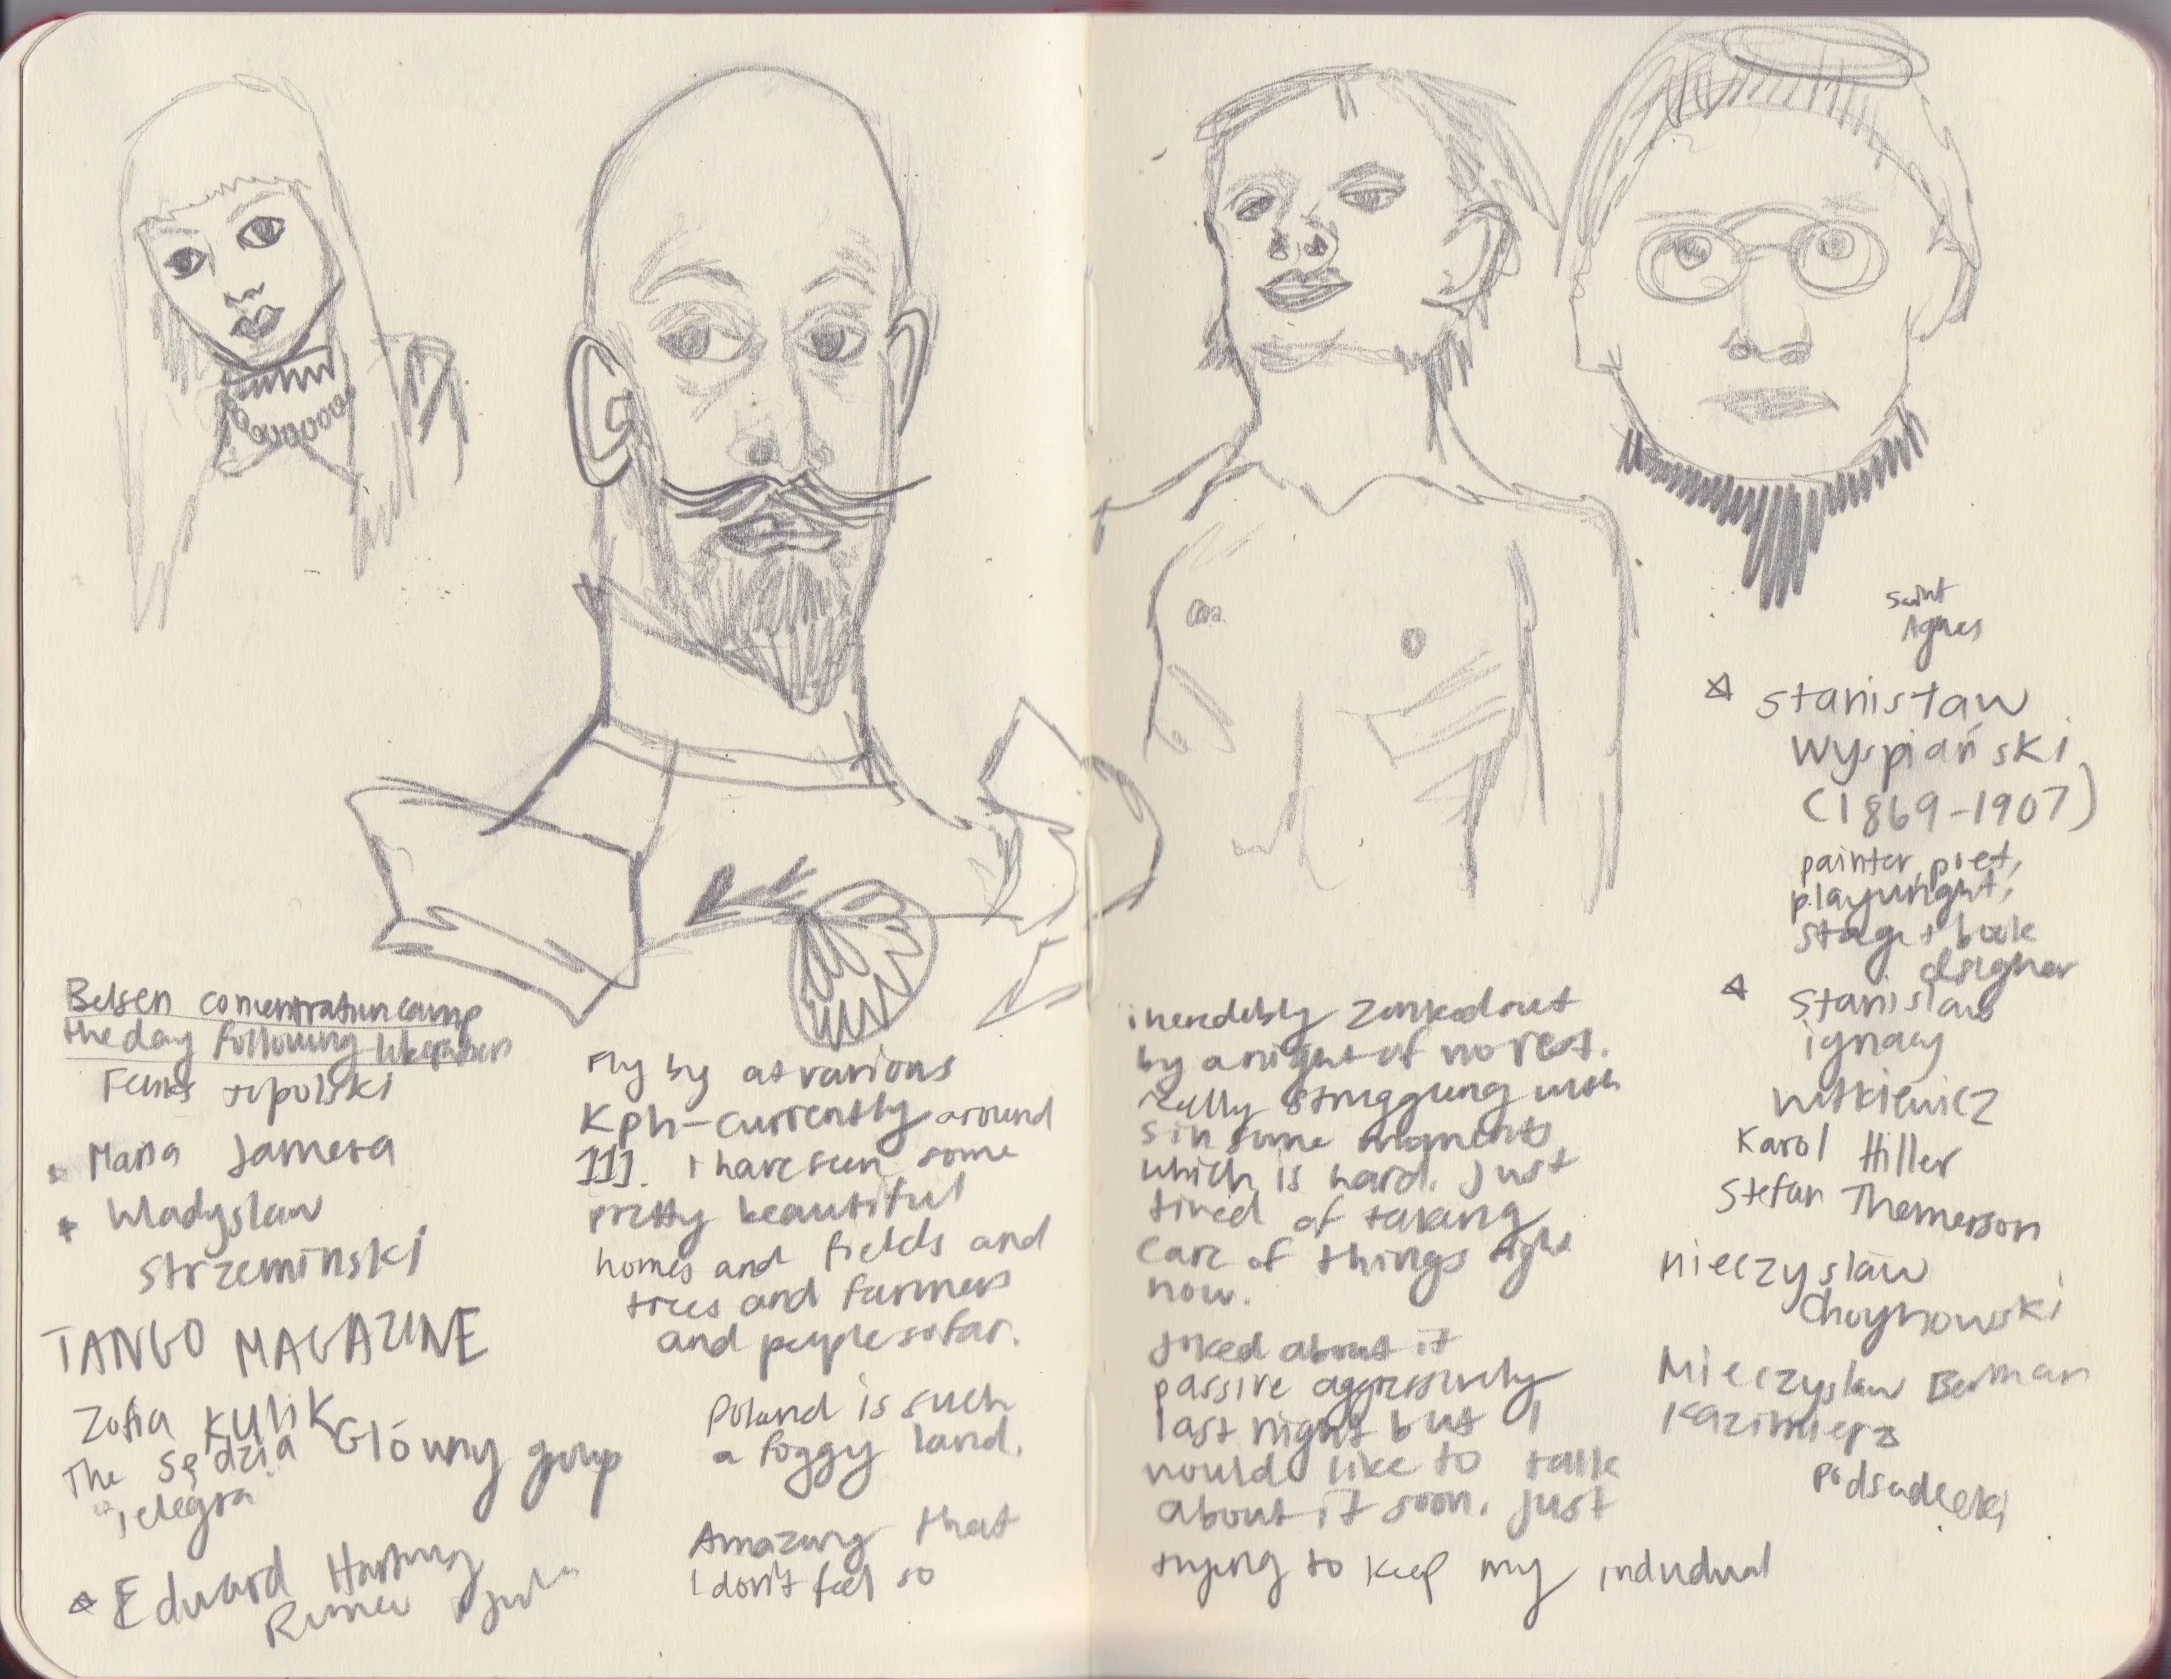 Belsen concentration camp
the day following liberation
Feliks Topolski
Maria Jarema
Wladyslaw
Strzeminski
TANGO MAGAZINE
Zofia KULIK
The Sędzia Główny group
"Telegra"
Eduard Hartwig
Fly by at various
Kph-currently around
111. I have seen some
pretty beautiful
homes and fields and
trees and farmers
and people so far.
Poland is such
a foggy land.
Amazing that
I don't feel so
incredibly zonked out
by a night of no rest.
really struggling with
S in some moments
which is hard. Just
tired of taking
care of things right
now.
Joked about it
passive aggressively
last night but I
would like to talk
about it soon. Just
trying to keep my individual
Saint
Agnes
Stanisław
Wyspiański
(1869-1907)
painter, poet,
playwright,
stage + book
designer
Stanislaw
ignacy
Witkiewicz
Karol Hiller
Stefan Themerson
Mieczyslaw
Choynowski
Mieczyslaw Berman
Kazimierz
Podsadecki